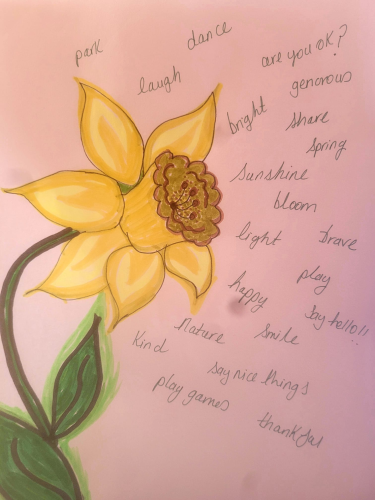 park
dance
are you OK?
laugh
generous
bright
share
spring
sunshine
bloom
light
brave
play
happy
Say hello!!
Nature
Smile
Kind
say nice things
play games
thankful